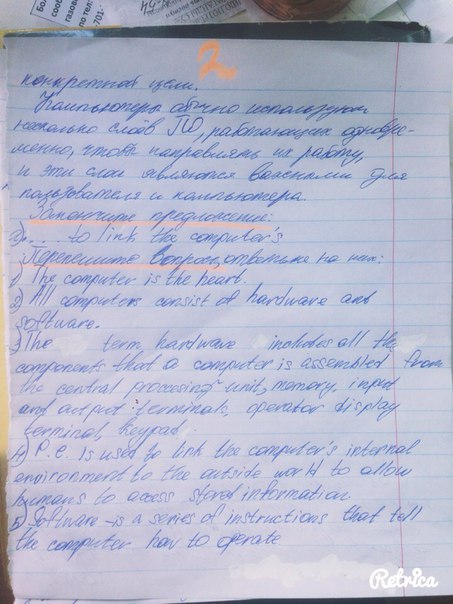 2.
конкретной цели.
Компьютеры обычно используют
несколько слоёв ПО, работающих одновре-
менно, чтобы направлять их работу,
и эти слои являются важными для
пользователя и компьютера.
Закончите предложение:
... to link the computer's
Перепишите вопросы, ответьте на них:
1) The computer is the heart.
2) All computers consist of hardware and
software.
3) The term hardware includes all the
components that a computer is assembled from
the central processing unit, memory, input
and output terminals, operator display
terminal, keypad.
4) P.C. Is used to link the computer's internal
environment to the outside world to allow
humans to access stored information
5) Software – is a series of instructions that tell
the computer how to operate
Retrica